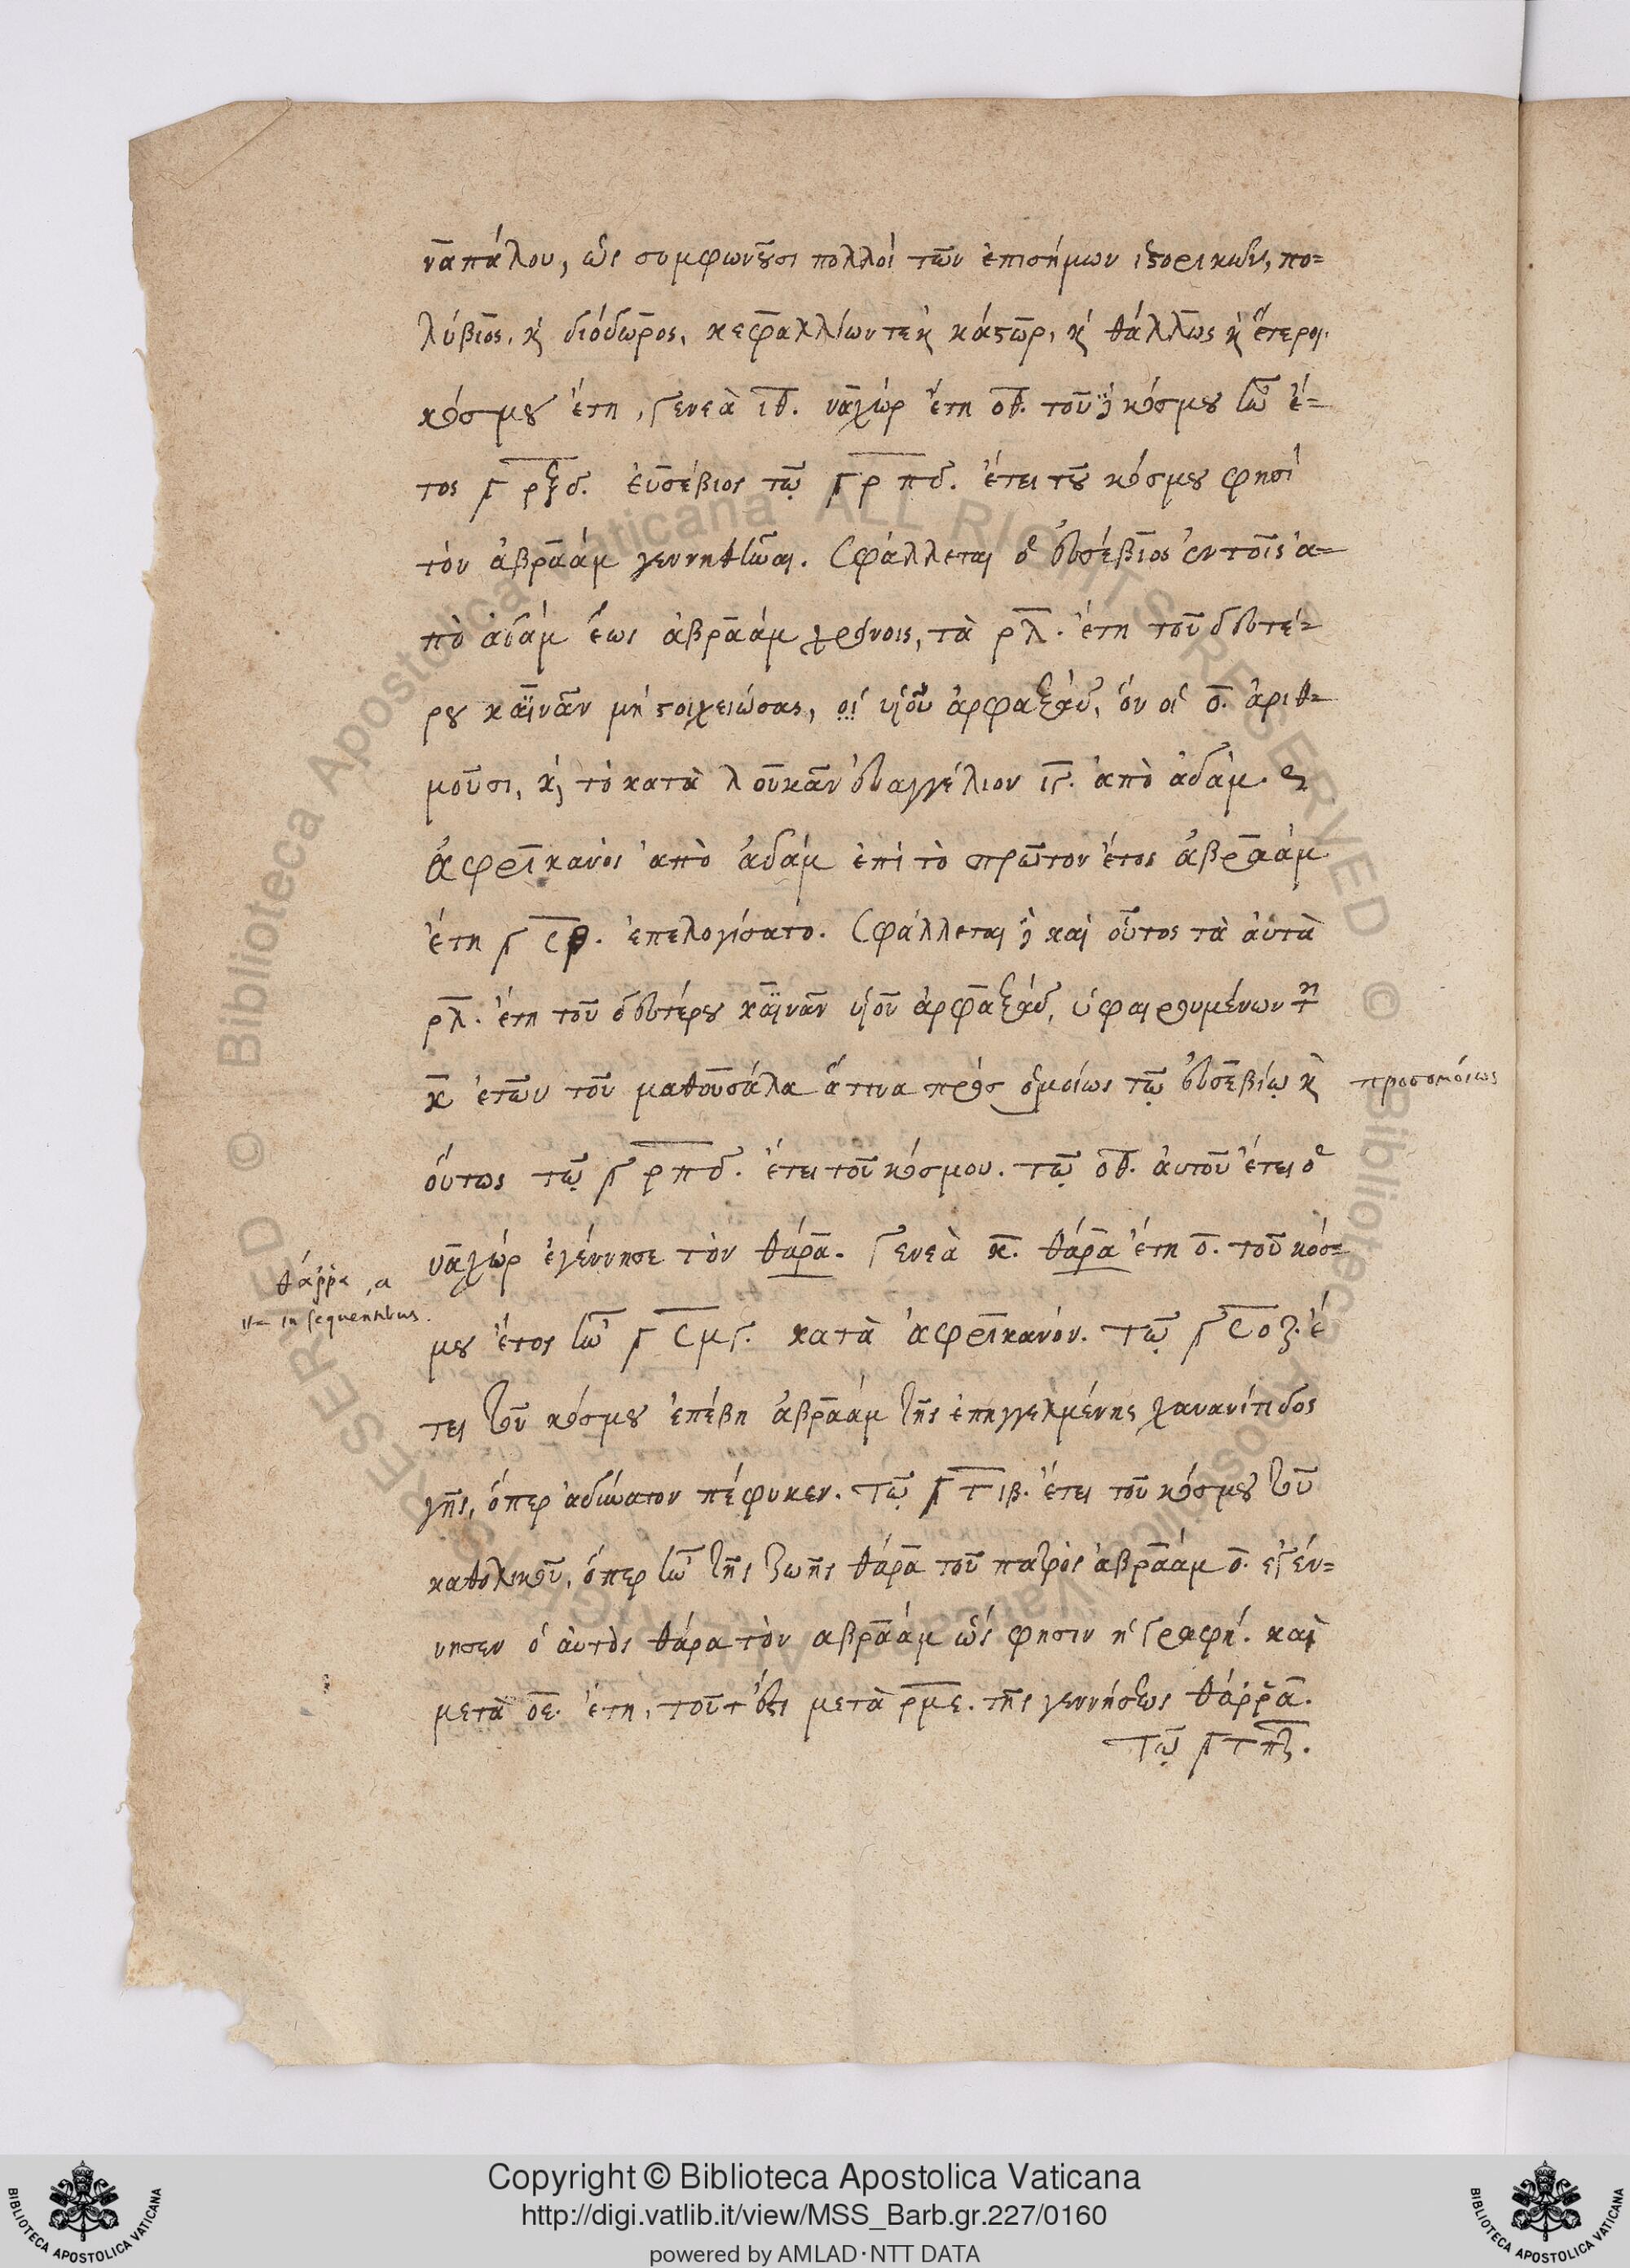 ναπάλου, ὡς συμφωνοῦσι πολλοὶ τῶν ἐπισήμων ἱστορικῶν, πο=
λύβιος, κὶ διόδωρος, κεφαλλίων τε κὶ κάστωρ, κὶ θάλλως κὶ ἕτεροι.
κόσμου ἔτη, γενεὰ ιθ. ναχώρ ἔτη οθ. τοῦ δὲ κόσμου ἦν ἔ=
τος ͵γ ρξδ. εὐσέβιος τῷ ͵γρπδ. ἔτει τοῦ κόσμου φησὶ
τὸν ἀβραάμ γεννηθῆναι. Σφάλλεται ὁ εὐσέβιος ἐν τοῖς ἀ=
πὸ ἀδάμ ἕως ἀβραάμ χρόνοις, τὰ ρλ. ἔτη τοῦ δευτέ=
ρου καϊνᾶν μὴ στοιχειώσας, οἱ υἱοῦ ἀρφαξάδ, ὅν οἱ ο. ἀριθ=
μοῦσι, κὶ τὸ κατὰ λουκᾶν εὐαγγέλιον ιγ. ἀπὸ ἀδάμ.
ἀφρικανὸς ἀπὸ ἀδάμ ἐπὶ τὸ πρῶτον ἔτος ἀβραάμ
ἔτη ͵γ σ. ἐπελογίσατο. Σφάλλεται δὲ καὶ οὗτος τὰ αὐτὰ
ρλ. ἔτη τοῦ δευτέρου καϊνᾶν υἱοῦ ἀρφαξάδ, ὑφαιρουμένων τῶν
κ ἐτῶν τοῦ μαθουσάλα ἅτινα πρὸς ὁμοίως τῷ εὐσεβίῳ κὶ
προσομοίως
οὕτως τῷ ͵γρπδ. ἔτει τοῦ κόσμου. τῷ οθ. ἀυτοῦ ἔτει ὁ
ναχώρ ἐγέννησε τὸν θάρα. Γενεὰ κ. θάρα ἔτη ο. τοῦ κόσ=
θάρρα
in sequentibus.
μου ἔτος ἦν ͵γ σμγ. κατὰ ἀφρικανόν. Τῷ ͵γσοζ. ἔ
τει τοῦ κόσμου ἐπέβη ἀβραάμ τῆς ἐπηγγελμένης χανανίτιδος
γῆς, ὅπερ ἀδύνατον πέφυκεν. Τῷ ͵γτιβ. ἔτει τοῦ κόσμου τοῦ
καθολικοῦ, ὅπερ ἦν τῆς ζωῆς θάρα τοῦ πατρὸς ἀβραάμ ο. ἐγέν=
νησεν ὁ ἀυτὸς θάρα τὸν αβραάμ ὥς φησιν ἡ γραφή. καὶ
μετὰ οε. ἔτη, τοῦτ' ἔστι μετὰ ρμε. τῆς γεννήσεως θάρρα.
Τῷ ͵γτπζ.
Copyright © Biblioteca Apostolica Vaticana
http://digi.vatlib.it/view/MSS_Barb.gr.227/0160
powered by AMLAD·NTT DATA